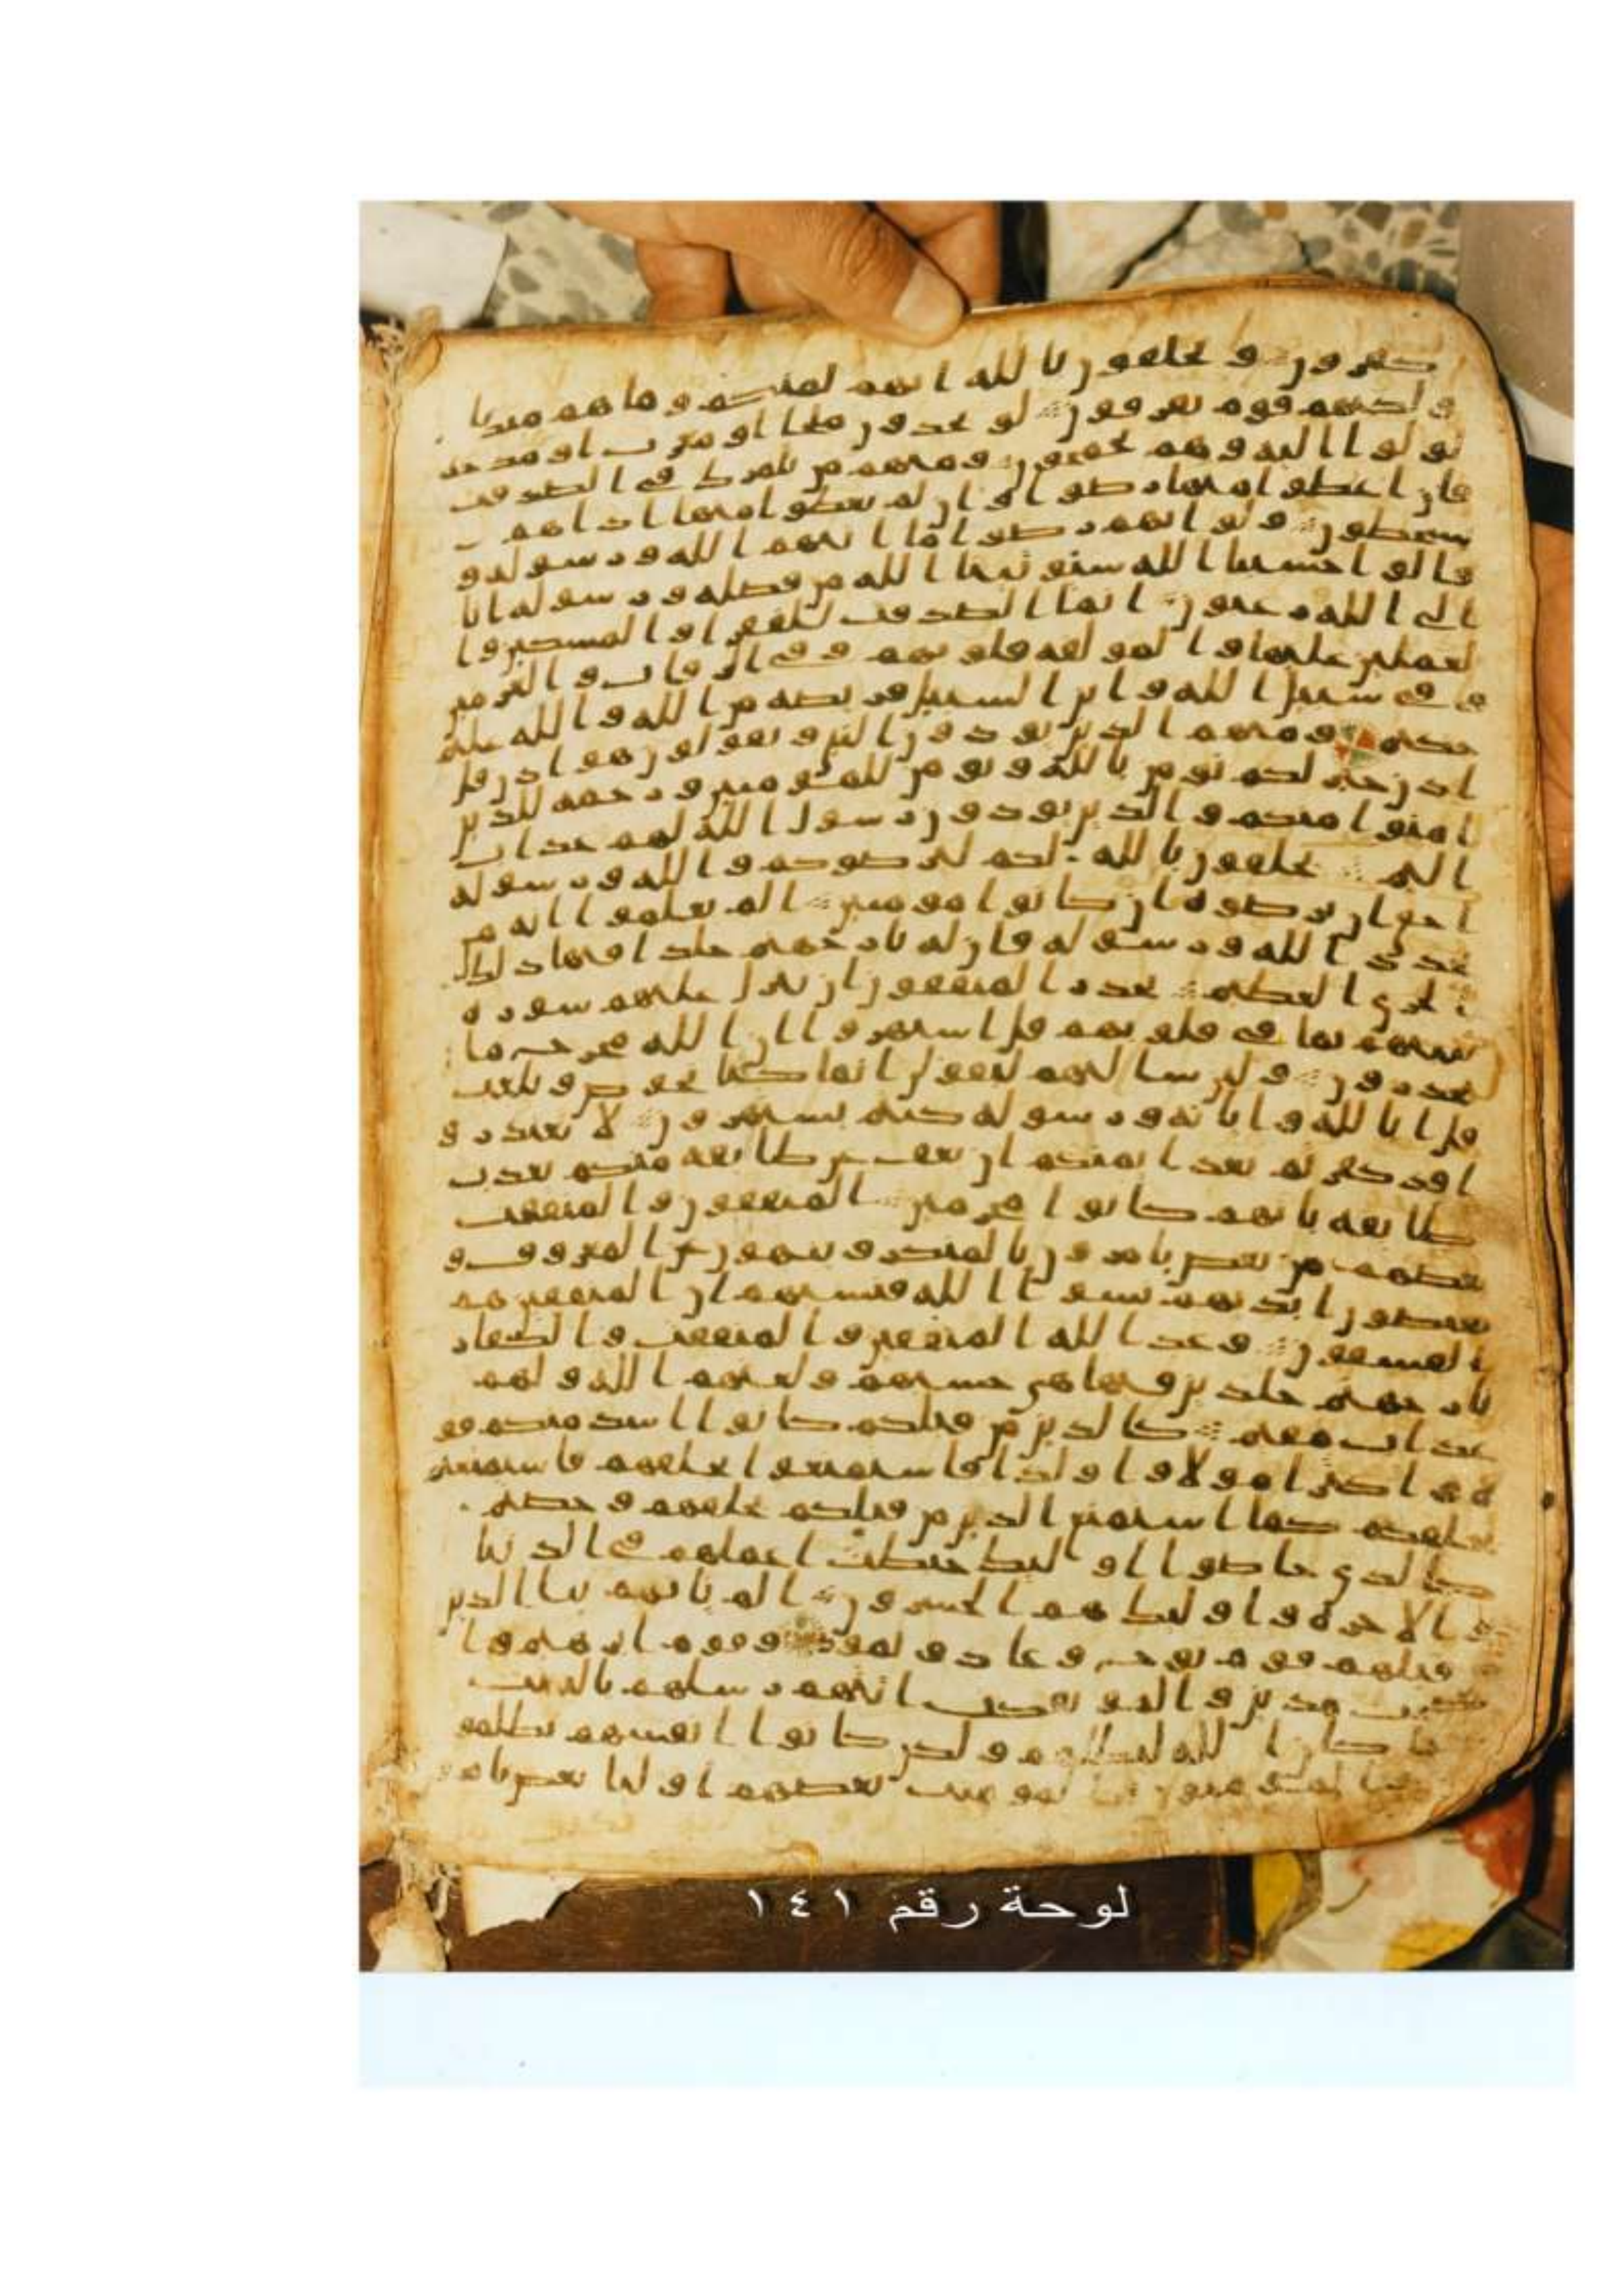 كفرون ويحلفون بالله انهم لمنكم وما هم منكم
ولكنهم قوم يفرقون لو يجدون ملجا او مغرت او مدخلا
لولوا اليه وهم يجمحون ومنهم من يلمزك في الصدقت
فان اعطوا منها رضوا وان لم يعطوا منها اذا هم
يسخطون ولو انهم رضوا ما اتيهم الله ورسوله و
قالوا حسبنا الله سيوتينا الله من فضله ورسوله انا
الى الله رغبون انما الصدقت للفقرا والمسكين وا
لعملين عليها والمولفه قلوبهم وفي الرقاب والغرمين
وفي سبيل الله وابن السبيل فريضه من الله والله عليم
حكيم ومنهم الذين يوذون النبي ويقولون هو اذن قل
اذن خير لكم يومن بالله ويومن للمومنين ورحمه للذين
امنوا منكم والذين يوذون رسول الله لهم عذاب
اليم يحلفون بالله لكم ليرضوكم والله ورسوله
احق ان يرضوه ان كانوا مومنين الم يعلموا انه من
يحدد الله ورسوله فان له نار جهنم خلدا فيها ذلك
الخزي العظيم يحذر المنفقون ان تنزل عليهم سوره
تنبيهم بما في قلوبهم قل استهزوا ان الله مخرج ما
تحذرون ولين سالتهم ليقولن انما كنا نخوض ونلعب
قل ابالله وايته ورسوله كنتم تستهزون لا تعتذروا
قد كفرتم بعد ايمنكم ان نعف عن طايفه منكم نعذب
طايفه بانهم كانوا مجرمين المنفقون والمنفقت
بعضهم من بعض يامرون بالمنكر وينهون عن المعروف و
يقبضون ايديهم نسوا الله فنسيهم ان المنفقين هم
الفسقون وعد الله المنفقين والمنفقت والكفار
نار جهنم خلدين فيها هي حسبهم ولعنهم الله ولهم
عذاب مقيم كالذين من قبلكم كانوا اشد منكم قو
ه واكثر امولا واولدا فاستمتعوا بخلقهم فاستمتعتم
بخلقكم كما استمتع الذين من قبلكم بخلقهم وخضتم
كالذي خاضوا اوليك حبطت اعملهم في الدنيا
والاخره واوليك هم الخسرون الم ياتهم نبا الذين
قبلهم قوم نوح وعاد وثمود وقوم ابرهيم وا
صحب مدين والموتفكت اتتهم رسلهم بالبينت
فما كان الله ليظلمهم ولكن كانوا انفسهم يظلمو
ن والمومنون والمومنت بعضهم اوليا بعض يامرو
لوحة رقم ١٤١